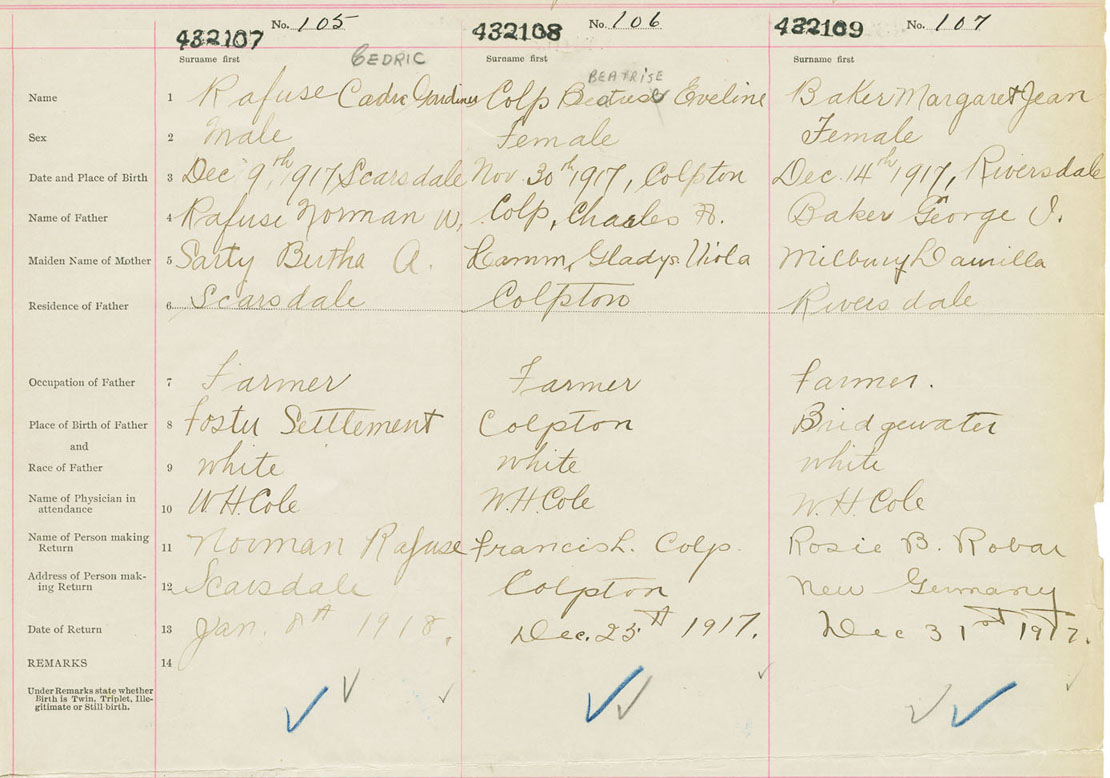 432107 No. 105 432108 No. 106 432109 No. 107
Surname first CEDRIC Surname first BEATRISE Surname first
Name 1 Rafuse Cadric Gardiner Colp Eveline Baker Margaret Jean
Sex 2 Male Female Female
Date and Place of Birth 3 Dec 9th, 1917, Scarsdale Nov. 30th 1917, Colpton Dec. 14th 1917, Riversdale
Name of Father 4 Rafuse Norman W. Colp, Charles Baker George
Maiden Name of Mother 5 Sarty Bertha A. Lamm, Gladys Viola Milbury
Residence of Father 6 Scarsdale Colpton Riversdale
Occupation of Father 7 Farmer Farmer Farmer.
Place of Birth of Father 8 Foster Settlement Colpton Bridgewater
and
Race of Father 9 white white white
Name of Physician in
attendance 10 W.H. Cole W.H. Cole W.H. Cole
Name of Person making
Return 11 Norman Rafuse Francis L. Colp. Rosie B. Robar
Address of Person mak-
ing Return 12 Scarsdale Colpton New Germany
Date of Return 13 Jan. 8th 1918. Dec. 1917. Dec 31st 1917.
REMARKS 14
Under Remarks state whether
Birth is Twin, Triplet, Ille-
gitimate or Still birth.